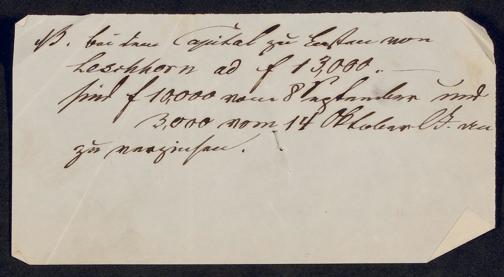 NB. bei dem Capital zu Lasten von
Leschhorn ad f 13,000.—
sind f 10,000 vom 8 September und
3,000 vom 14 Oktober
zu verzinsen.